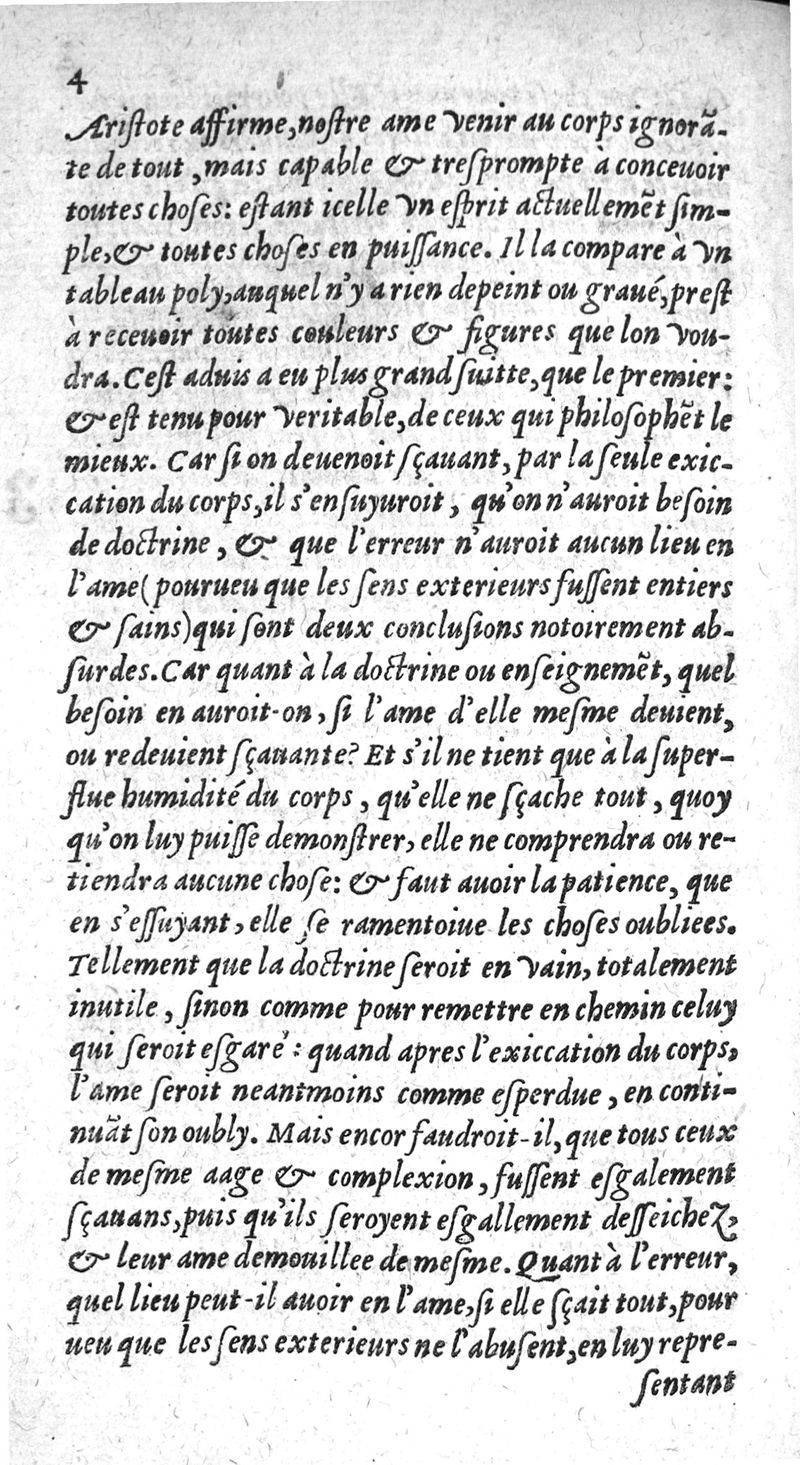 4
Ariſtote affirme, noſtre ame venir au corps ignorã-
te de tout, mais capable & treſprompte à conceuoir
toutes choſes: eſtant icelle vn eſprit actuellemẽt ſim-
ple, & toutes choſes en puiſſance. Il la compare à vn
tableau poly, auquel n'y a rien depeint ou graué, preſt
à receuoir toutes couleurs & figures que lon vou-
dra. Ceſt aduis a eu plus grand ſuitte, que le premier:
& eſt tenu pour veritable, de ceux qui philoſophẽt le
mieux. Car ſi on deuenoit ſçauant, par la ſeule exic-
cation du corps, il s'enſuyuroit, qu'on n'auroit beſoin
de doctrine, & que l'erreur n'auroit aucun lieu en
l'ame (pourueu que les ſens exterieurs fuſſent entiers
& ſains) qui ſont deux concluſions notoirement ab-
ſurdes. Car quant à la doctrine ou enſeignemẽt, quel
beſoin en auroit-on, ſi l'ame d'elle meſme deuient,
ou redeuient ſçauante? Et s'il ne tient que à la ſuper-
flue humidité du corps, qu'elle ne ſçache tout, quoy
qu'on luy puiſſe demonſtrer, elle ne comprendra ou re-
tiendra aucune choſe: & faut auoir la patience, que
en s'eſſuyant, elle ſe ramentoiue les choſes oubliees.
Tellement que la doctrine ſeroit en vain, totalement
inutile, ſinon comme pour remettre en chemin celuy
qui ſeroit eſgaré: quand apres l'exiccation du corps,
l'ame ſeroit neantmoins comme eſperdue, en conti-
nuãt ſon oubly. Mais encor faudroit-il, que tous ceux
de meſme aage & complexion, fuſſent eſgalement
ſçauans, puis qu'ils ſeroyent eſgallement deſſeichez,
& leur ame demouillee de meſme. Quant à l'erreur,
quel lieu peut-il auoir en l'ame, ſi elle ſçait tout, pour
ueu que les ſens exterieurs ne l'abuſent, en luy repre-
ſentant